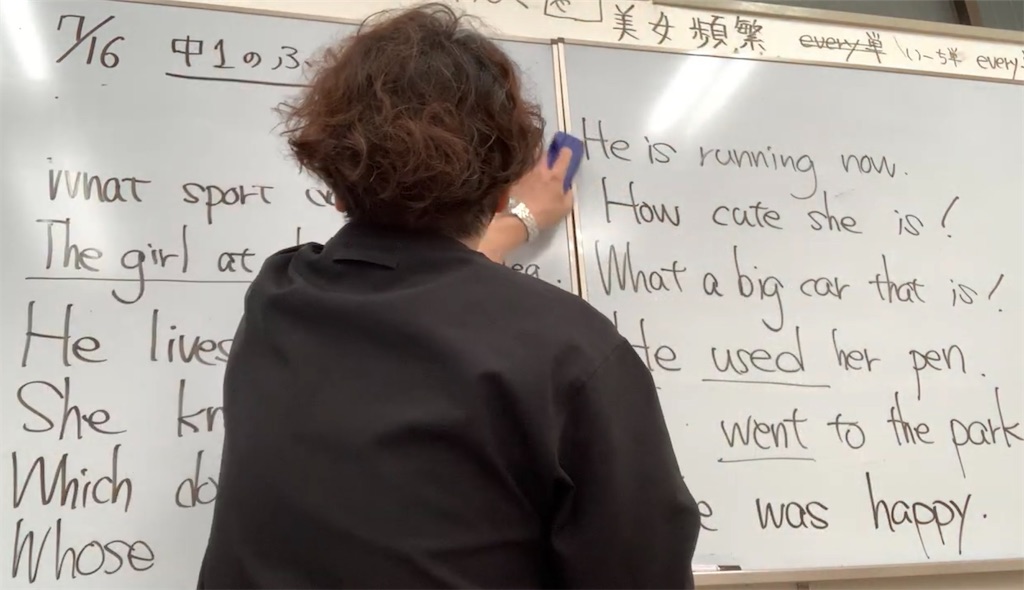 美女頻繁 every単 いーち単 every
7/16 中1のふ
What sport
The girl at
He lives
She kn
Which do
Whose
He is running now.
How cute she is!
What a big car that is!
He used her pen.
went to the park
was happy.